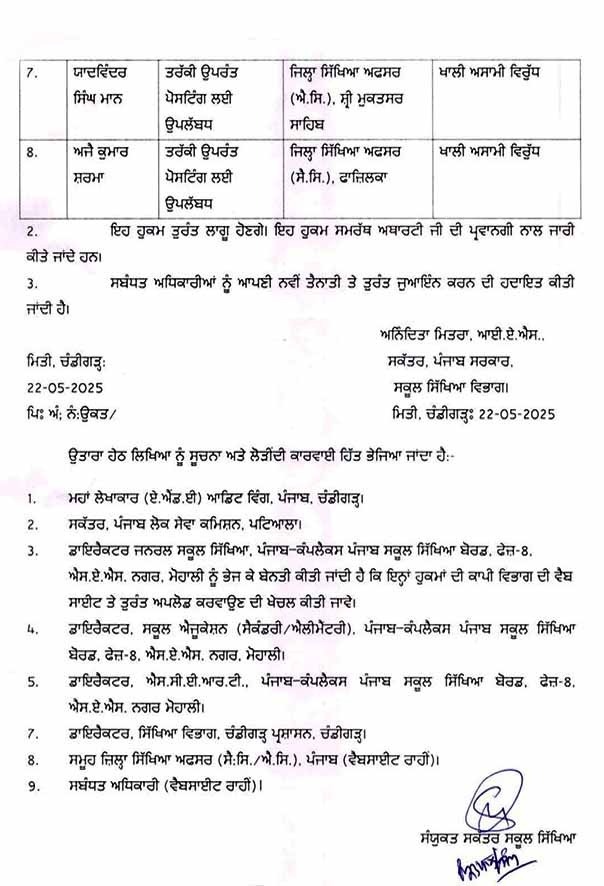 7. ਯਾਦਵਿੰਦਰ ਤਰੱਕੀ ਉਪਰੰਤ ਜਿਲ੍ਹਾ ਸਿੱਖਿਆ ਅਫਸਰ ਖਾਲੀ ਅਸਾਮੀ ਵਿਰੁੱਧ
ਸਿੰਘ ਮਾਨ ਪੋਸਟਿੰਗ ਲਈ (ਐ.ਸਿ.), ਸ਼੍ਰੀ ਮੁਕਤਸਰ
ਉਪਲੱਬਧ ਸਾਹਿਬ
8. ਅਜੈ ਕੁਮਾਰ ਤਰੱਕੀ ਉਪਰੰਤ ਜਿਲ੍ਹਾ ਸਿੱਖਿਆ ਅਫਸਰ ਖਾਲੀ ਅਸਾਮੀ ਵਿਰੁੱਧ
ਸ਼ਰਮਾ ਪੋਸਟਿੰਗ ਲਈ (ਸੈ.ਸਿ.), ਫਾਜ਼ਿਲਕਾ
ਉਪਲੱਬਧ
2. ਇਹ ਹੁਕਮ ਤੁਰੰਤ ਲਾਗੂ ਹੋਣਗੇ। ਇਹ ਹੁਕਮ ਸਮਰੱਥ ਅਥਾਰਟੀ ਜੀ ਦੀ ਪ੍ਰਵਾਨਗੀ ਨਾਲ ਜਾਰੀ
ਕੀਤੇ ਜਾਂਦੇ ਹਨ।
3. ਸਬੰਧਤ ਅਧਿਕਾਰੀਆਂ ਨੂੰ ਆਪਣੀ ਨਵੀਂ ਤੈਨਾਤੀ ਤੇ ਤੁਰੰਤ ਜੁਆਇੰਨ ਕਰਨ ਦੀ ਹਦਾਇਤ ਕੀਤੀ
ਜਾਂਦੀ ਹੈ।
ਅਨਿੰਦਿਤਾ ਮਿਤਰਾ, ਆਈ.ਏ.ਐਸ..
ਮਿਤੀ, ਚੰਡੀਗੜ੍ਹ: ਸਕੱਤਰ, ਪੰਜਾਬ ਸਰਕਾਰ,
22-05-2025 ਸਕੂਲ ਸਿੱਖਿਆ ਵਿਭਾਗ।
ਪਿਃ ਅੰ; ਨੰ:ਉਕਤ/ ਮਿਤੀ, ਚੰਡੀਗੜ੍ਹਃ 22-05-2025
ਉਤਾਰਾ ਹੇਠ ਲਿਖਿਆ ਨੂੰ ਸੂਚਨਾ ਅਤੇ ਲੋੜੀਂਦੀ ਕਾਰਵਾਈ ਹਿੱਤ ਭੇਜਿਆ ਜਾਂਦਾ ਹੈ:-
1. ਮਹਾਂ ਲੇਖਾਕਾਰ (ਏ.ਐਂਡ.ਈ) ਆਡਿਟ ਵਿੰਗ, ਪੰਜਾਬ, ਚੰਡੀਗੜ੍ਹ।
2. ਸਕੱਤਰ, ਪੰਜਾਬ ਲੋਕ ਸੇਵਾ ਕਮਿਸ਼ਨ, ਪਟਿਆਲਾ।
3. ਡਾਇਰੈਕਟਰ ਜਨਰਲ ਸਕੂਲ ਸਿੱਖਿਆ, ਪੰਜਾਬ-ਕੰਪਲੈਕਸ ਪੰਜਾਬ ਸਕੂਲ ਸਿੱਖਿਆ ਬੋਰਡ, ਫੇਜ਼-8,
ਐਸ.ਏ.ਐਸ. ਨਗਰ, ਮੋਹਾਲੀ ਨੂੰ ਭੇਜ ਕੇ ਬੇਨਤੀ ਕੀਤੀ ਜਾਂਦੀ ਹੈ ਕਿ ਇਨ੍ਹਾਂ ਹੁਕਮਾਂ ਦੀ ਕਾਪੀ ਵਿਭਾਗ ਦੀ ਵੈਬ
ਸਾਈਟ ਤੇ ਤੁਰੰਤ ਅਪਲੋਡ ਕਰਵਾਉਣ ਦੀ ਖੇਚਲ ਕੀਤੀ ਜਾਵੇ।
4. ਡਾਇਰੈਕਟਰ, ਸਕੂਲ ਐਜੂਕੇਸ਼ਨ (ਸੈਕੰਡਰੀ/ਐਲੀਮੈਂਟਰੀ), ਪੰਜਾਬ-ਕੰਪਲੈਕਸ ਪੰਜਾਬ ਸਕੂਲ ਸਿੱਖਿਆ
ਬੋਰਡ, ਫੇਜ਼-8, ਐਸ.ਏ.ਐਸ. ਨਗਰ, ਮੋਹਾਲੀ।
5. ਡਾਇਰੈਕਟਰ, ਐਸ.ਸੀ.ਈ.ਆਰ.ਟੀ., ਪੰਜਾਬ-ਕੰਪਲੈਕਸ ਪੰਜਾਬ ਸਕੂਲ ਸਿੱਖਿਆ ਬੋਰਡ, ਫੇਜ਼-8,
ਐਸ.ਏ.ਐਸ. ਨਗਰ ਮੋਹਾਲੀ।
7. ਡਾਇਰੈਕਟਰ, ਸਿੱਖਿਆ ਵਿਭਾਗ, ਚੰਡੀਗੜ੍ਹ ਪ੍ਰਸ਼ਾਸਨ, ਚੰਡੀਗੜ੍ਹ।
8. ਸਮੂਹ ਜ਼ਿਲ੍ਹਾ ਸਿੱਖਿਆ ਅਫਸਰ (ਸੈ:ਸਿ./ਐ.ਸਿ.), ਪੰਜਾਬ (ਵੈਬਸਾਈਟ ਰਾਹੀਂ)।
9. ਸਬੰਧਤ ਅਧਿਕਾਰੀ (ਵੈਬਸਾਈਟ ਰਾਹੀਂ)।
ਸੰਯੁਕਤ ਸਕੱਤਰ ਸਕੂਲ ਸਿੱਖਿਆ